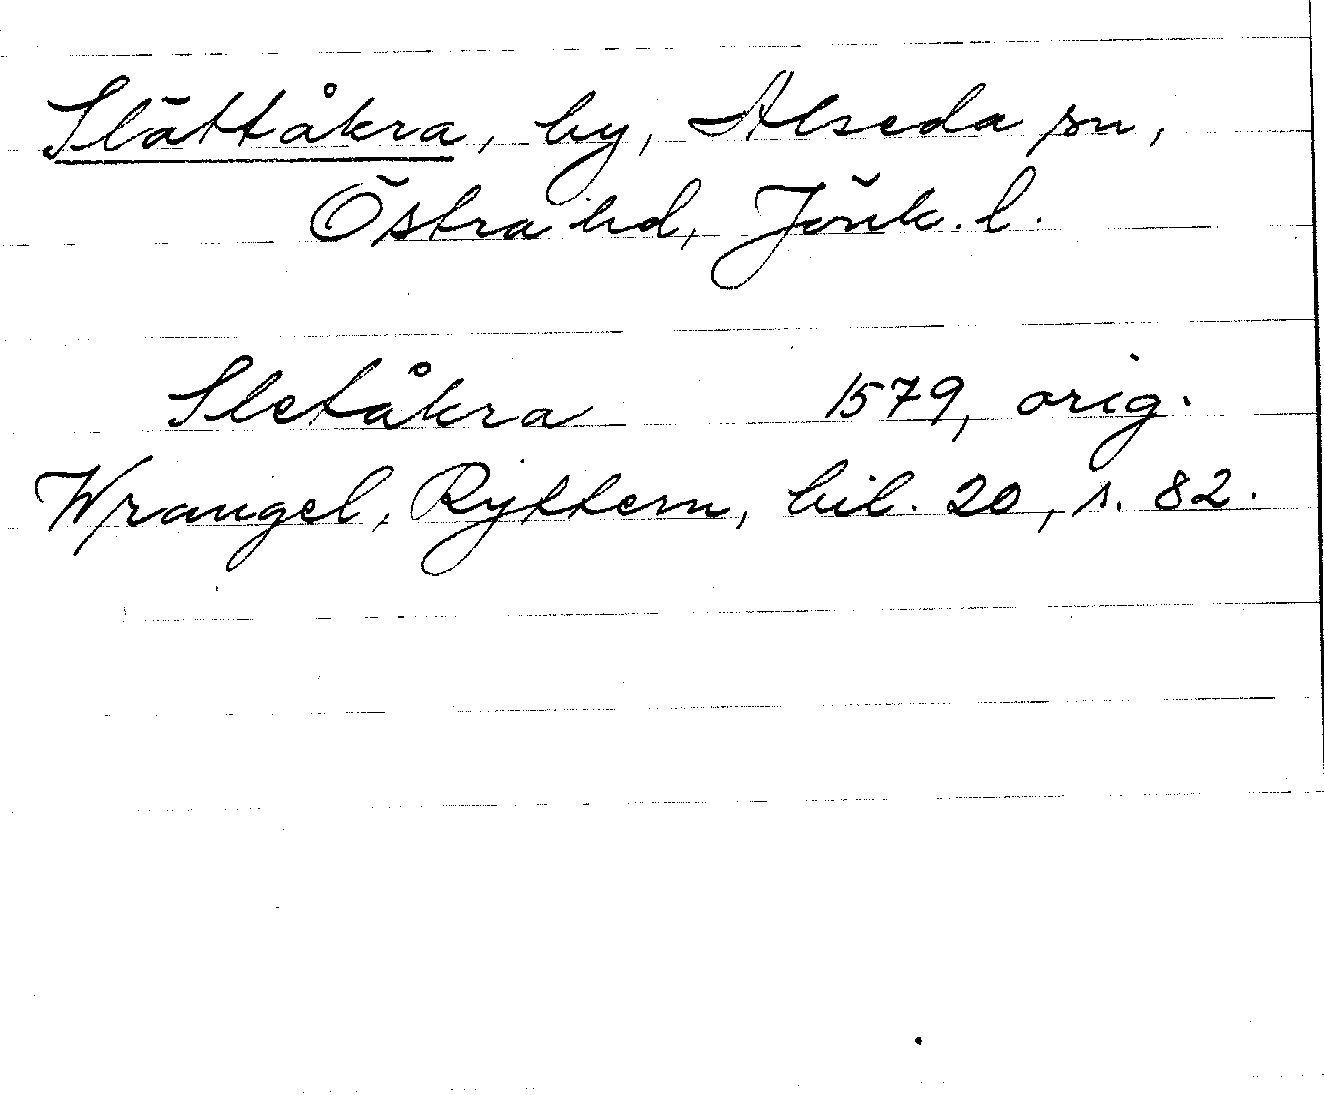 Slättåkra, by, Alseda sn,
Östra hd, Jönk. l.
Sletåkra 1579, orig.
Wrangel, Ryttern, bil. 20, s. 82.